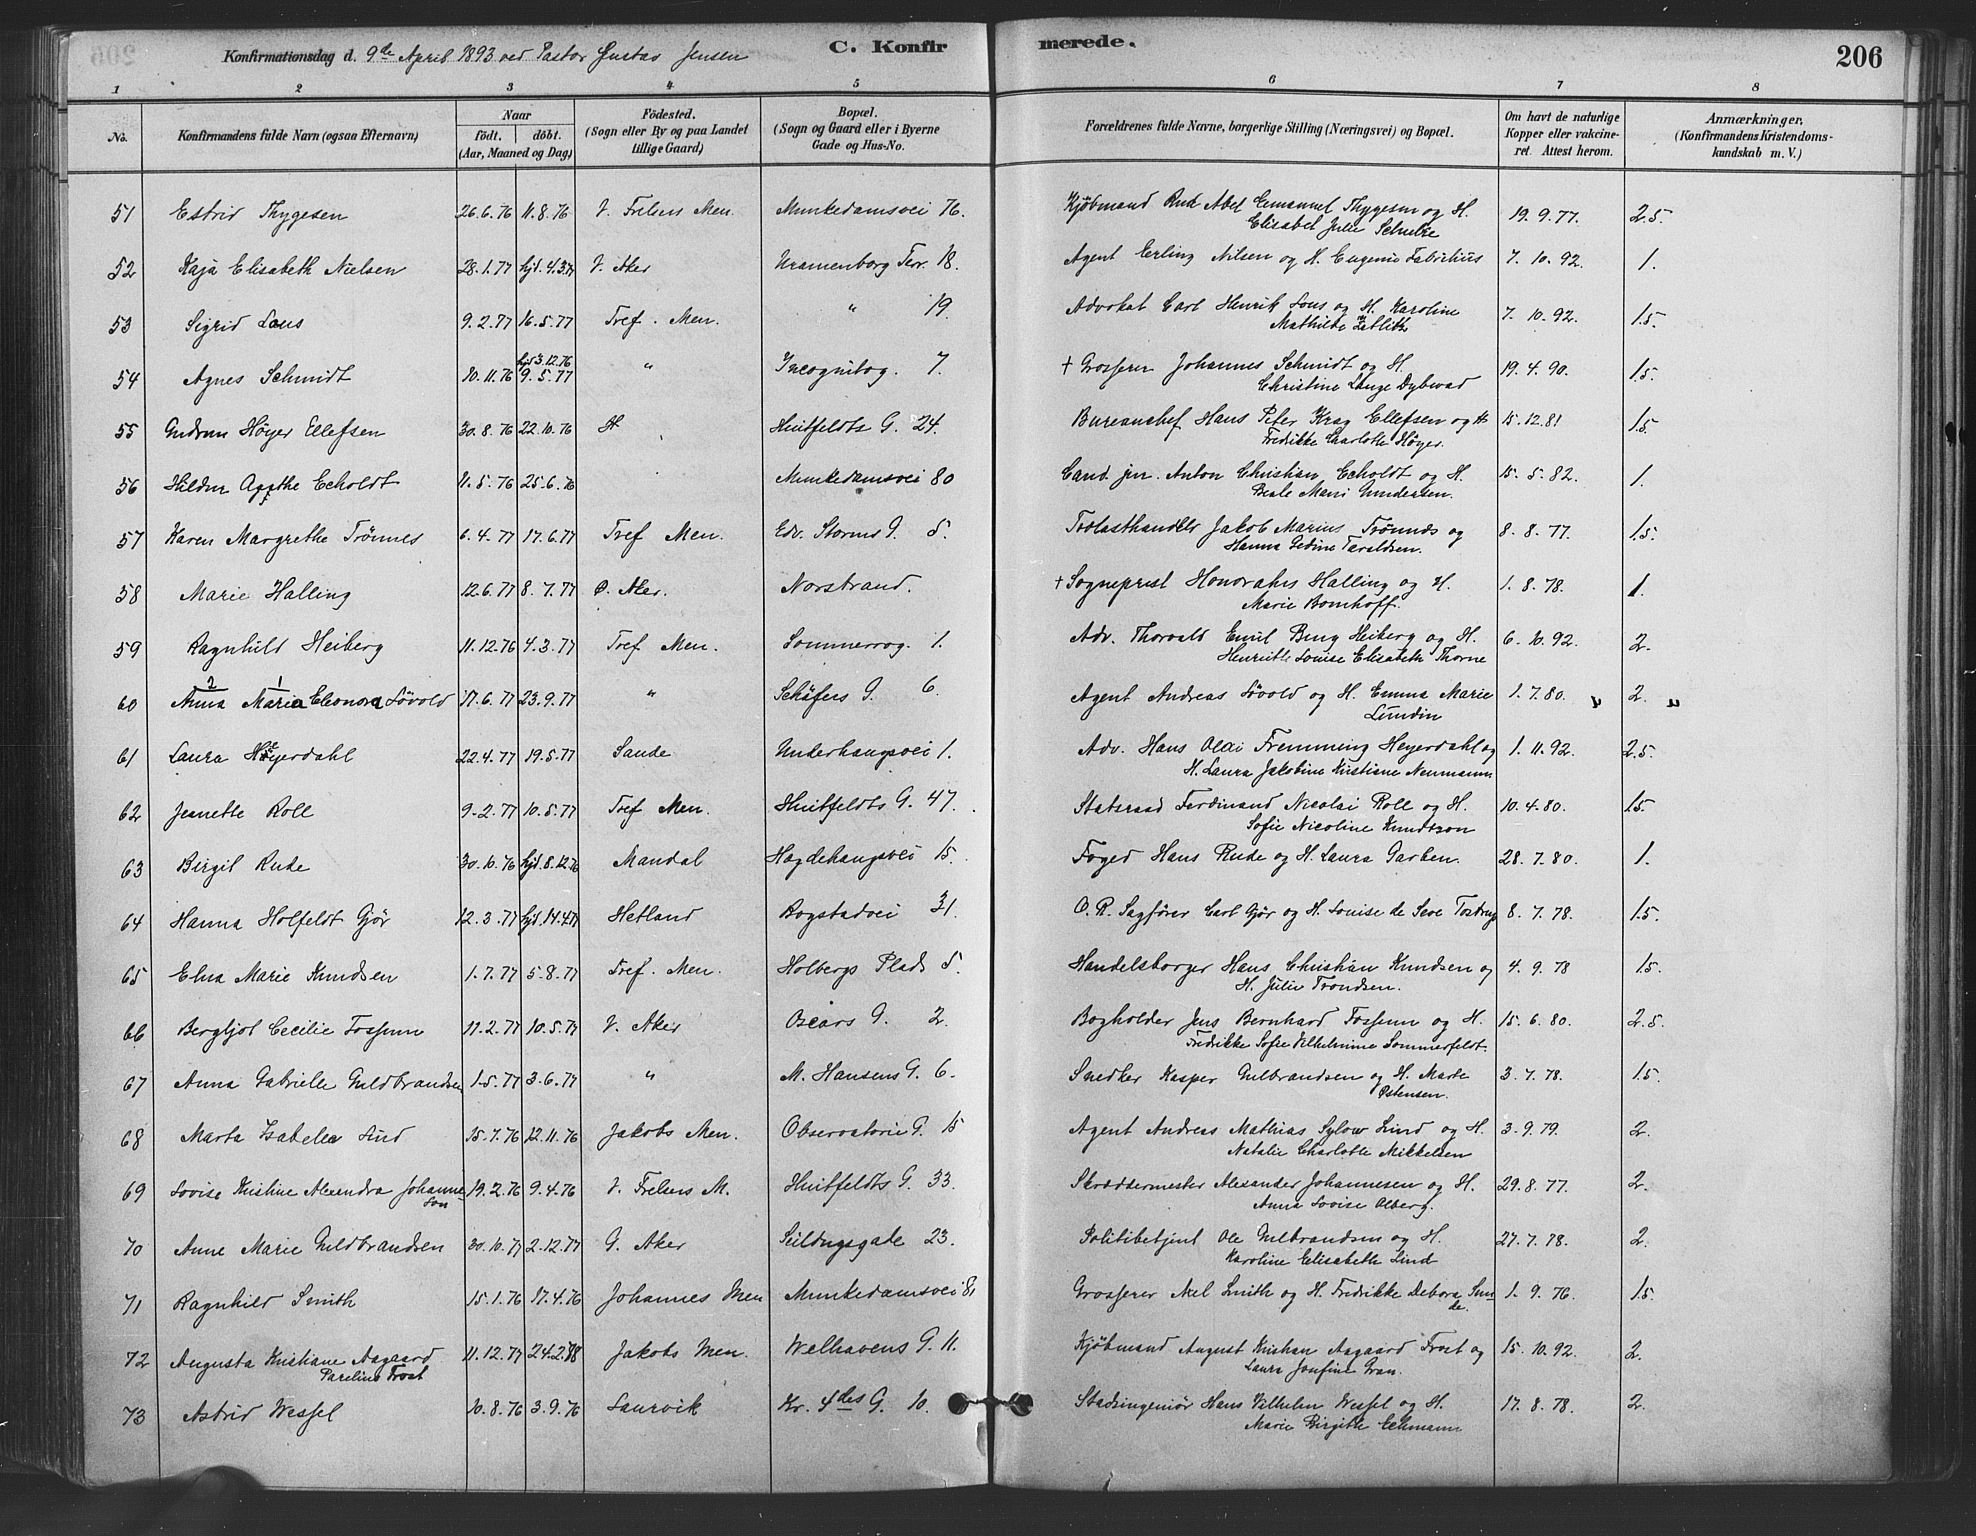 Konfirmationsdag d. 9de April 1893 ved Pastor Gustav Jensen
C. Konfirmerede.
206
1 2 3 4 5 6 7 8
No. Konfirmandens fulde Navn (ogsaa Efternavn) Naar födt. döbt. (Aar, Maaned og Dag) Födested. (Sogn eller By og paa Landet tillige Gaard) Bopæl. (Sogn og Gaard eller i Byerne Gade og Hus-No. Forældrenes fulde Navne, borgerlige Stilling (Næringsvei) og Bopæl. Om havt de naturlige Kopper eller vakcineret. Attest herom. Anmærkninger, (Konfirmandens Kristendomskundskab m. V.)
51 Estrid Thygesen 26.6.76 11.8.76 V. Frelsers Men. Munkedamsvei 76. Kjöbmand Abel Emanuel Thygesen og H. 19.9.77. 2.5
Elisabet Julie Schulze
52 Kaja Elisabeth Nielsen 28.1.77 hjd. 4.3.77 V. Aker Uranienborg Terr. 18. Agent Erling Nilsen og H. Eugenie Fabritius 7.10.92. 1.
53 Sigrid Lous 9.2.77 16.5.77 Tref. Men. " 19. Advokat Carl Henrik Lous og H. Karoline 7.10.92. 1.5.
Mathilde Zetlitz
54 Agnes Schmidt 10.11.76 hjd 3.12.76 9.5.77 " Incognitog. 7. + Grosserer Johannes Schmidt og H. 19.4.90. 1.5.
Christine Lange Dybwad
55 Gudrun Höyer Ellefsen 30.8.76 22.10.76 Huitfeldts G. 24. Bureauchef Hans Peter Krag Ellefsen og H 15.12.81 1.5.
Fredrikke Charlotte Höyer.
56 Hildur Agathe Echoldt 11.5.76 25.6.76 Munkedamsvei 80 Cand. jur. Anton Christian Echoldt og H. 15.5.82. 1.
Beate Marie Gundersen.
57 Karen Margrethe Trönnes 6.4.77 17.6.77 Tref Men. Edv. Storms G. 5. Trelasthandler Jakob Marius Trönnes og 8.8.77. 1.5.
Hanna Taraldsen.
58 Marie Halling 12.6.77 8.7.77 Ø. Aker. Norstrand. + Sogneprest Honoratus Halling og H. 1.8.78. 1.
Marie Bomhoff.
59 Ragnhild Heiberg 11.12.76 4.3.77 Tref Men. Sommerrog. 1. Adv. Thorvald Emil Bing Heiberg og H. 6.10.92. 2.
Henriette Louise Elisabeth Thorne
2 1
60 Anna Maria Eleonora Lövold 17.6.77 23.9.77 " Schäfers G. 6. Agent Andreas Lövold og H. Emma Marie 1.7.80. " 2. "
Lundin
61 Laura Heyerdahl 22.4.77 19.5.77 Sande Underhaugsvei 1. Adv. Hans Olai Fremming Heyerdahl og 1.11.92. 2.5.
H. Laura Jakobine Kristiane Neumann
62 Jeanette Roll 9.2.77 10.5.77 Tref Men. Huitfeldts G. 47. Statsraad Ferdinand Nicolai Roll og H. 10.4.80. 1.5
Sofie Nicoline Knudtzon
63 Birgit Rude 30.10.76 hjd. 8.12.76 Mandal Hægdehaugsvei 15. Foged Hans Rude og H. Laura Garben. 28.7.80. 1.
64 Hanna Holfeldt Gjör 12.3.77 hjd. 14.4.77 Hetland Bogstadvei 31. O. R. Sagförer Carl Gjör og H. Louise de Seve Tostrup 8.7.78. 1.5.
65 Elna Marie Knudsen 1.7.77 5.8.77 Tref. Men. Holbergs Plads 5. Handelsborger Hans Christian Knudsen og 4.9.78 1.5.
H. Julie Trondsen.
66 Bergljot Cecilie Fossum 17.2.77 10.5.77 V. Aker Oscars G. 2. Bogholder Jens Bernhard Fossum og H. 15.6.80. 2.5.
Fredrikke Sofie Vilhelmine Sommerfeldt.
67 Anna Gabrielle Guldbrandsen 1.5.77 3.6.77 " M. Hansens G. 6. Snedker Kasper Gulbrandsen og H. Marte 3.7.78. 1.5.
Østensen.
68 Marta Isabella Lind 15.7.76 12.11.76 Jakobs Men. Observatorie G. 15 Agent Andreas Mathias Sylow Lind og H. 3.9.79. 2.
Natalie Charlotte Mikkelsen
69 Lovise Kristine Alexandra Johannesen 19.2.76 9.4.76 V. Frelsers M. Huitfeldts G. 33. Skræddermester Alexander Johannesen og H. 29.8.77. 2.
Anna Lovise Alberg.
70 Anne Marie Guldbrandsen 30.10.77 2.12.77 G. Aker Seildugsgade 23. Politibetjent Ole Gulbrandsen og H. 27.7.78. 2.
Karoline Elisabeth Lind
71 Ragnhild Smith 15.1.76 17.4.76 Johannes Men Munkedamsvei 81 Grosserer Axel Smith og H. Fredrikke Debora Sunde. 1.9.76. 1.5.
72 Augusta Kristiane Aagaard 11.12.77 24.2.78 Jakobs Men. Welhavens G. 11. Kjöbmand August Kristian Aagaard Frost og 15.10.92. 2.
Pareline Frost Laura Josefine Gran.
73 Astrid Wessel 10.8.76 3.9.76 Laurvik Kr. 4des G. 10. Stadsingeniör Hans Vilhelm Wessel og H. 17.8.78. 2.
Marie Birgitte Eckmann